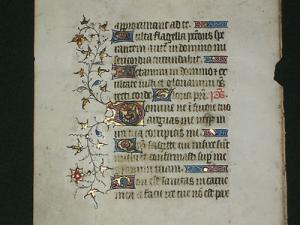 approximabunt ad te.
Multa flagella peccatoris spe
rantem aute in domino mi
sericordia circundabit.
Letamini in domino et ex
ultate iusti et gloriamini
recti corde. ps.
Domine ne in furore tuo
arguas me neqz in
ira tua corripias me.
sagitte tue infixe sunt
michi et confirmasti sup me
manum tuam.
Non est sanitas in carne
mea a facie ire tue non est pax